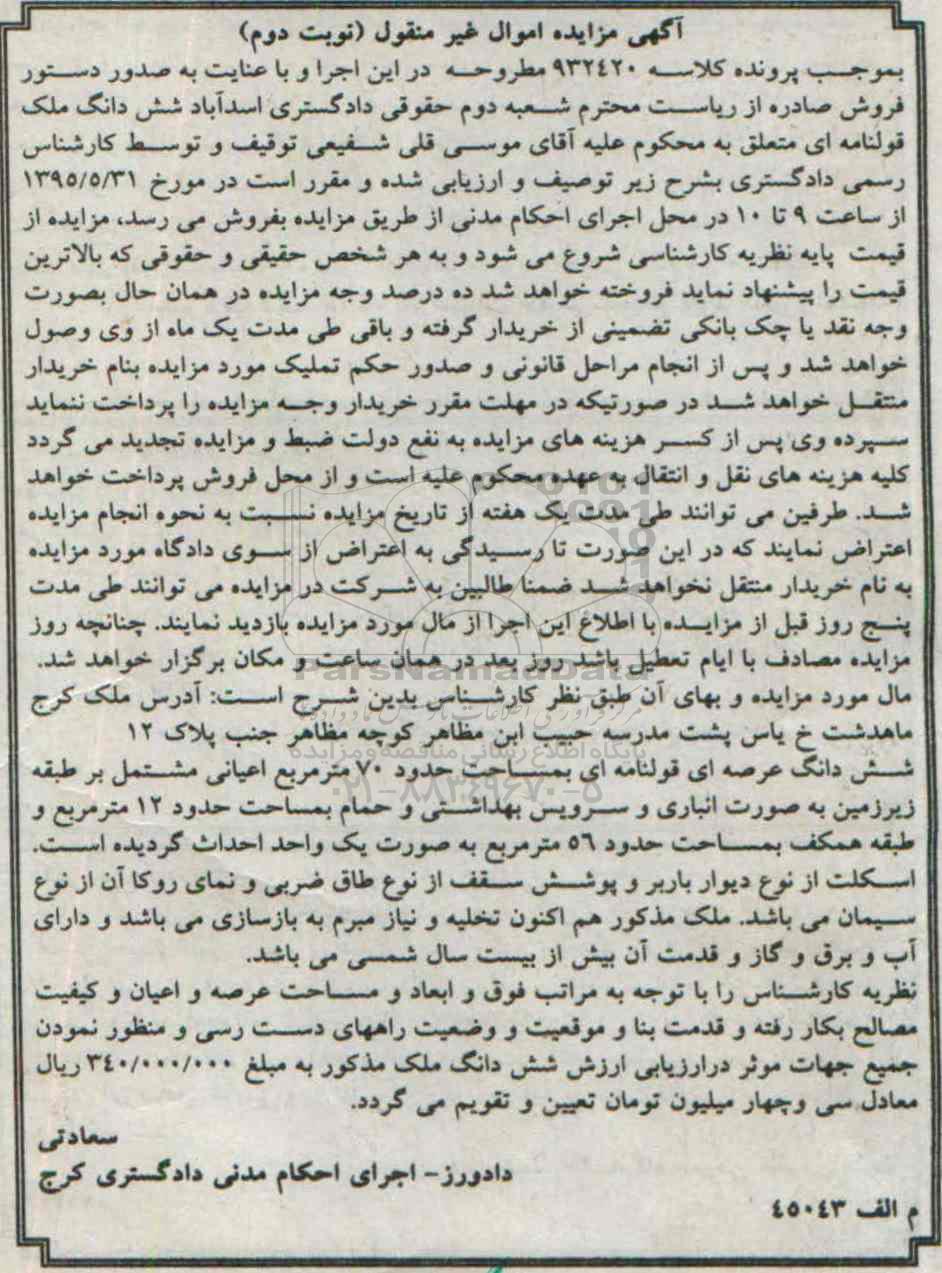 آگهی مزایده اموال غیر منقول (نوبت دوم)
بموجب پرونده کلاسه ۹۳۲۴۲۰ مطروحه در این اجرا و با عنایت به صدور دستور
فروش صادره از ریاست محترم شعبه دوم حقوقی دادگستری اسدآباد شش دانگ ملک
قولنامه ای متعلق به محکوم علیه آقای موسی قلی شفیعی توقیف و توسط کارشناس
رسمی دادگستری بشرح زیر توصیف و ارزیابی شده و مقرر است در مورخ ۱۳۹۵/۵/۳۱
از ساعت ۹ تا ۱۰ در محل اجرای احکام مدنی از طریق مزایده بفروش می رسد، مزایده از
قیمت پایه نظریه کارشناسی شروع می شود و به هر شخص حقیقی و حقوقی که بالاترین
قیمت را پیشنهاد نماید فروخته خواهد شد ده درصد وجه مزایده در همان حال بصورت
وجه نقد یا چک بانکی تضمینی از خریدار گرفته و باقی طی مدت یک ماه از وی وصول
خواهد شد و پس از انجام مراحل قانونی و صدور حکم تملیک مورد مزایده بنام خریدار
منتقل خواهد شد در صورتیکه در مهلت مقرر خریدار وجه مزایده را پرداخت ننماید
سپرده وی پس از کسر هزینه های مزایده به نفع دولت ضبط و مزایده تجدید می گردد
کلیه هزینه های نقل و انتقال به عهده محکوم علیه است و از محل فروش پرداخت خواهد
شد. طرفین می توانند طی مدت یک هفته از تاریخ مزایده نسبت به نحوه انجام مزایده
اعتراض نمایند که در این صورت تا رسیدگی به اعتراض از سوی دادگاه مورد مزایده
به نام خریدار منتقل نخواهد شد ضمنا طالبین به شرکت در مزایده می توانند طی مدت
پنج روز قبل از مزایده با اطلاع این اجرا از مال مورد مزایده بازدید نمایند. چنانچه روز
مزایده مصادف با ایام تعطیل باشد روز بعد در همان ساعت و مکان برگزار خواهد شد.
ParsNamadData
مال مورد مزایده و بهای آن طبق نظر کارشناس بدین شرح است: آدرس ملک کرج
ماهدشت خ یاس پشت مدرسه حبیب ابن مظاهر کوچه مظاهر جنب پلاک ۱۲
پایگاه اطلاع رسانی مناقصه و مزایده
شش دانگ عرصه ای قولنامه ای بمساحت حدود ۷۰ مترمربع اعیانی مشتمل بر طبقه
۰۲۱-۸۸۳۴۹۶۷۰-۵
زیرزمین به صورت انباری و سرویس بهداشتی و حمام بمساحت حدود ۱۲ مترمربع و
طبقه همکف بمساحت حدود ۵۶ مترمربع به صورت یک واحد احداث گردیده است.
اسکلت از نوع دیوار باربر و پوشش سقف از نوع طاق ضربی و نمای روکا آن از نوع
سیمان می باشد. ملک مذکور هم اکنون تخلیه و نیاز مبرم به بازسازی می باشد و دارای
آب و برق و گاز و قدمت آن بیش از بیست سال شمسی می باشد.
نظریه کارشناس را با توجه به مراتب فوق و ابعاد و مساحت عرصه و اعیان و کیفیت
مصالح بکار رفته و قدمت بنا و موقعیت و وضعیت راههای دست رسی و منظور نمودن
جمیع جهات موثر درارزیابی ارزش شش دانگ ملک مذکور به مبلغ ۳۴۰/۰۰۰/۰۰۰ ریال
معادل سی وچهار میلیون تومان تعیین و تقویم می گردد.
سعادتی
دادورز- اجرای احکام مدنی دادگستری کرج
م الف ۴۵۰۴۳